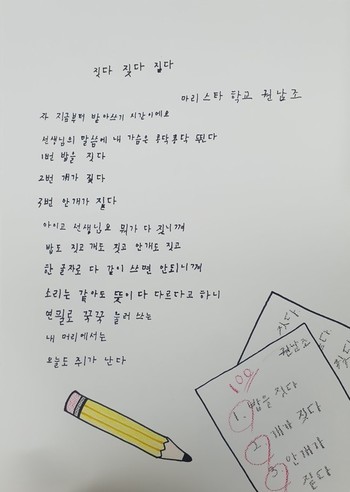 짓다 짖다 짙다
마리스타 학교 권남조
자 지금부터 받아쓰기 시간이에요
선생님의 말씀에 내 가슴은 콩닥콩닥 뛴다
1번 밥을 짓다
2번 개가 짖다
3번 안개가 짙다
아이고 선생님요 뭐가 다 짓니껴
밥도 짓고 개도 짖고 안개도 짙고
한 글자로 다 같이 쓰면 안되니껴
소리는 같아도 뜻이 다 다르다고 하니
연필로 꾹꾹 눌러 쓰는
내 머리에서는
오늘도 쥐가 난다
짓다
짖다
권남조
100
1. 밥을 짓다
2. 개가 짖다
3. 안개가
짙다